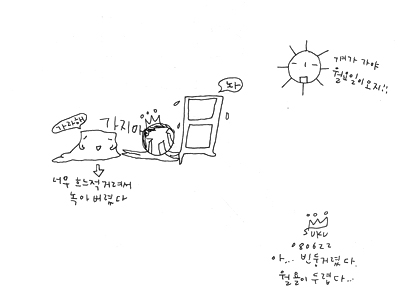 가지마
놔
걔가 가야
월요일이 오지!!
너무 흐느적거려서
녹아버렸다
SUKU
080622
아... 빈둥거렸다.
월요일이 두렵다...